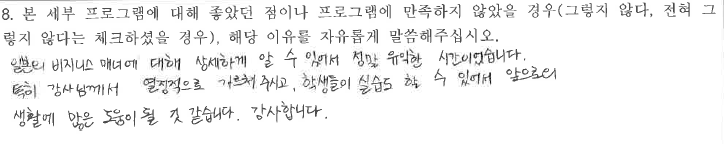 8. 본 세부 프로그램에 대해 좋았던 점이나 프로그램에 만족하지 않았을 경우(그렇지 않다, 전혀 그
렇지 않다는 체크하셨을 경우), 해당 이유를 자유롭게 말씀해주십시오.
일본의 비지니스 매너에 대해 상세하게 알 수 있어서 정말 유익한 시간이었습니다.
특히 강사님께서 열정적으로 가르쳐 주시고, 학생들이 실습도 할 수 있어서 앞으로의
생활에 많은 도움이 될 것 같습니다. 감사합니다.